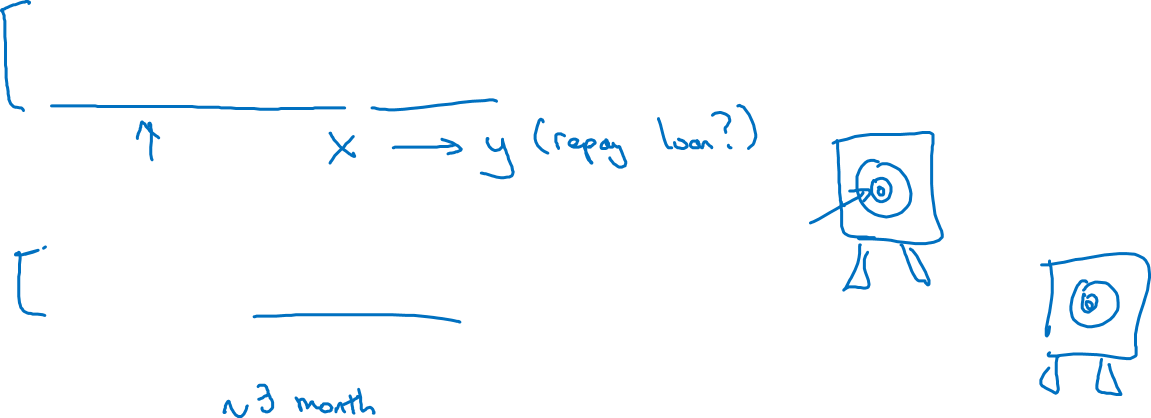 x → y (repay loan?)
~3 month